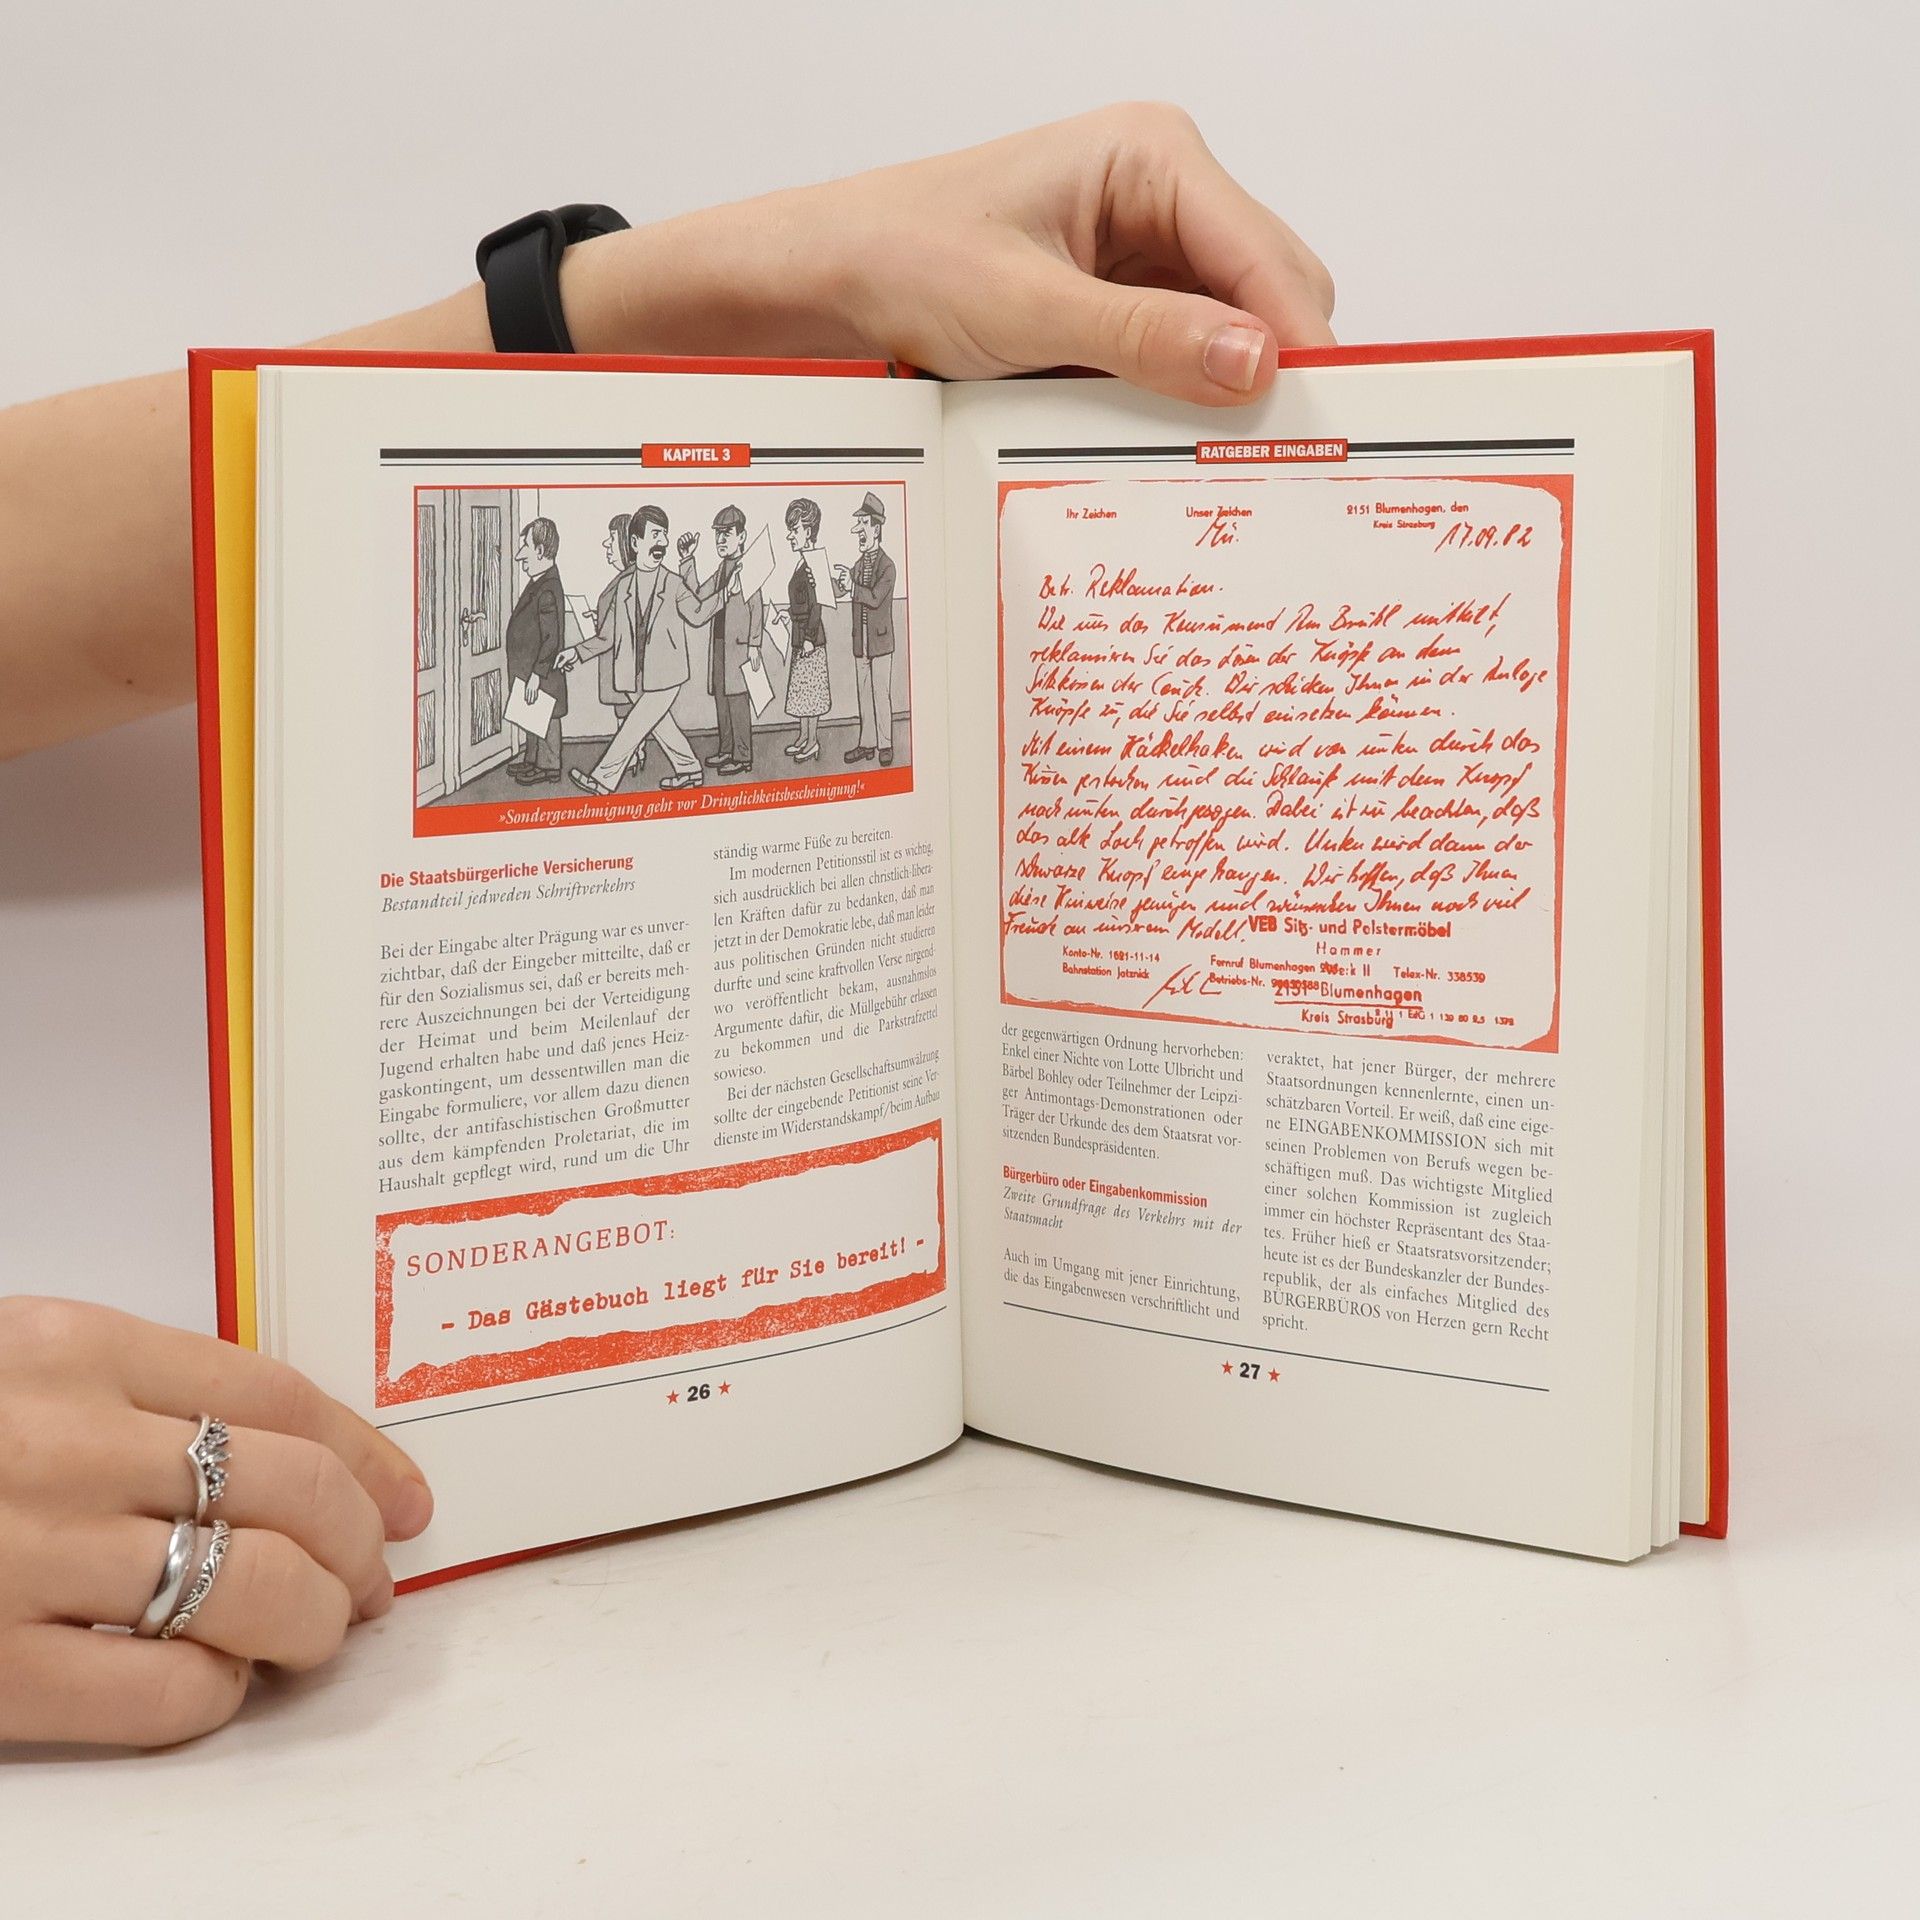 KAPITEL 3
»Sondergenehmigung geht vor Dringlichkeitsbescheinigung!«
Die Staatsbürgerliche Versicherung
Bestandteil jedweden Schriftverkehrs
Bei der Eingabe alter Prägung war es unver-
zichtbar, daß der Eingeber mitteilte, daß er
für den Sozialismus sei, daß er bereits meh-
rere Auszeichnungen bei der Verteidigung
der Heimat und beim Meilenlauf der
Jugend erhalten habe und daß jenes Heiz-
gaskontingent, um dessentwillen man die
Eingabe formuliere, vor allem dazu dienen
sollte, der antifaschistischen Großmutter
aus dem kämpfenden Proletariat, die im
Haushalt gepflegt wird, rund um die Uhr
ständig warme Füße zu bereiten.
Im modernen Petitionsstil ist es wichtig,
sich ausdrücklich bei allen christlich-libera-
len Kräften dafür zu bedanken, daß man
jetzt in der Demokratie lebe, daß man leider
aus politischen Gründen nicht studieren
durfte und seine kraftvollen Verse nirgend-
wo veröffentlicht bekam, ausnahmslos
Argumente dafür, die Müllgebühr erlassen
zu bekommen und die Parkstrafzettel
sowieso.
Bei der nächsten Gesellschaftsumwälzung
sollte der eingebende Petitionist seine Ver-
dienste im Widerstandskampf/beim Aufbau
SONDERANGEBOT:
- Das Gästebuch liegt für Sie bereit! -
★ 26 ★
RATGEBER EINGABEN
Ihr Zeichen Unser Zeichen 2151 Blumenhagen, den
Kreis Strasburg
Mü. 17.09.82
Betr. Reklamation.
Wie uns das Konsument Am Brühl mitteilt,
reklamieren Sie das Lösen der Knöpfe an dem
Sitzkissen der Couch. Wir schicken Ihnen in der Anlage
Knöpfe zu, die Sie selbst einsetzen können.
Mit einem Häckelhaken wird von unten durch das
Kissen gestochen und die Schlaufe mit dem Knopf
nach unten durchgezogen. Dabei ist zu beachten, daß
das alte Loch getroffen wird. Unten wird dann der
schwarze Knopf eingehangen. Wir hoffen, daß Ihnen
diese Hinweise genügen und wünschen Ihnen noch viel
Freude an unserem Modell.
VEB Sitz- und Polstermöbel
Hammer
Konto-Nr. 1621-11-14
Fernruf Blumenhagen Telex-Nr. 338539
Bahnstation Jatznick
Betriebs-Nr.
2151 Blumenhagen
Kreis Strasburg
der gegenwärtigen Ordnung hervorheben:
Enkel einer Nichte von Lotte Ulbricht und
Bärbel Bohley oder Teilnehmer der Leipzi-
ger Antimontags-Demonstrationen oder
Träger der Urkunde des dem Staatsrat vor-
sitzenden Bundespräsidenten.
Bürgerbüro oder Eingabenkommission
Zweite Grundfrage des Verkehrs mit der
Staatsmacht
Auch im Umgang mit jener Einrichtung,
die das Eingabenwesen verschriftlicht und
veraktet, hat jener Bürger, der mehrere
Staatsordnungen kennenlernte, einen un-
schätzbaren Vorteil. Er weiß, daß eine eige-
ne EINGABENKOMMISSION sich mit
seinen Problemen von Berufs wegen be-
schäftigen muß. Das wichtigste Mitglied
einer solchen Kommission ist zugleich
immer ein höchster Repräsentant des Staa-
tes. Früher hieß er Staatsratsvorsitzender;
heute ist es der Bundeskanzler der Bundes-
republik, der als einfaches Mitglied des
BÜRGERBÜROS von Herzen gern Recht
spricht.
★ 27 ★